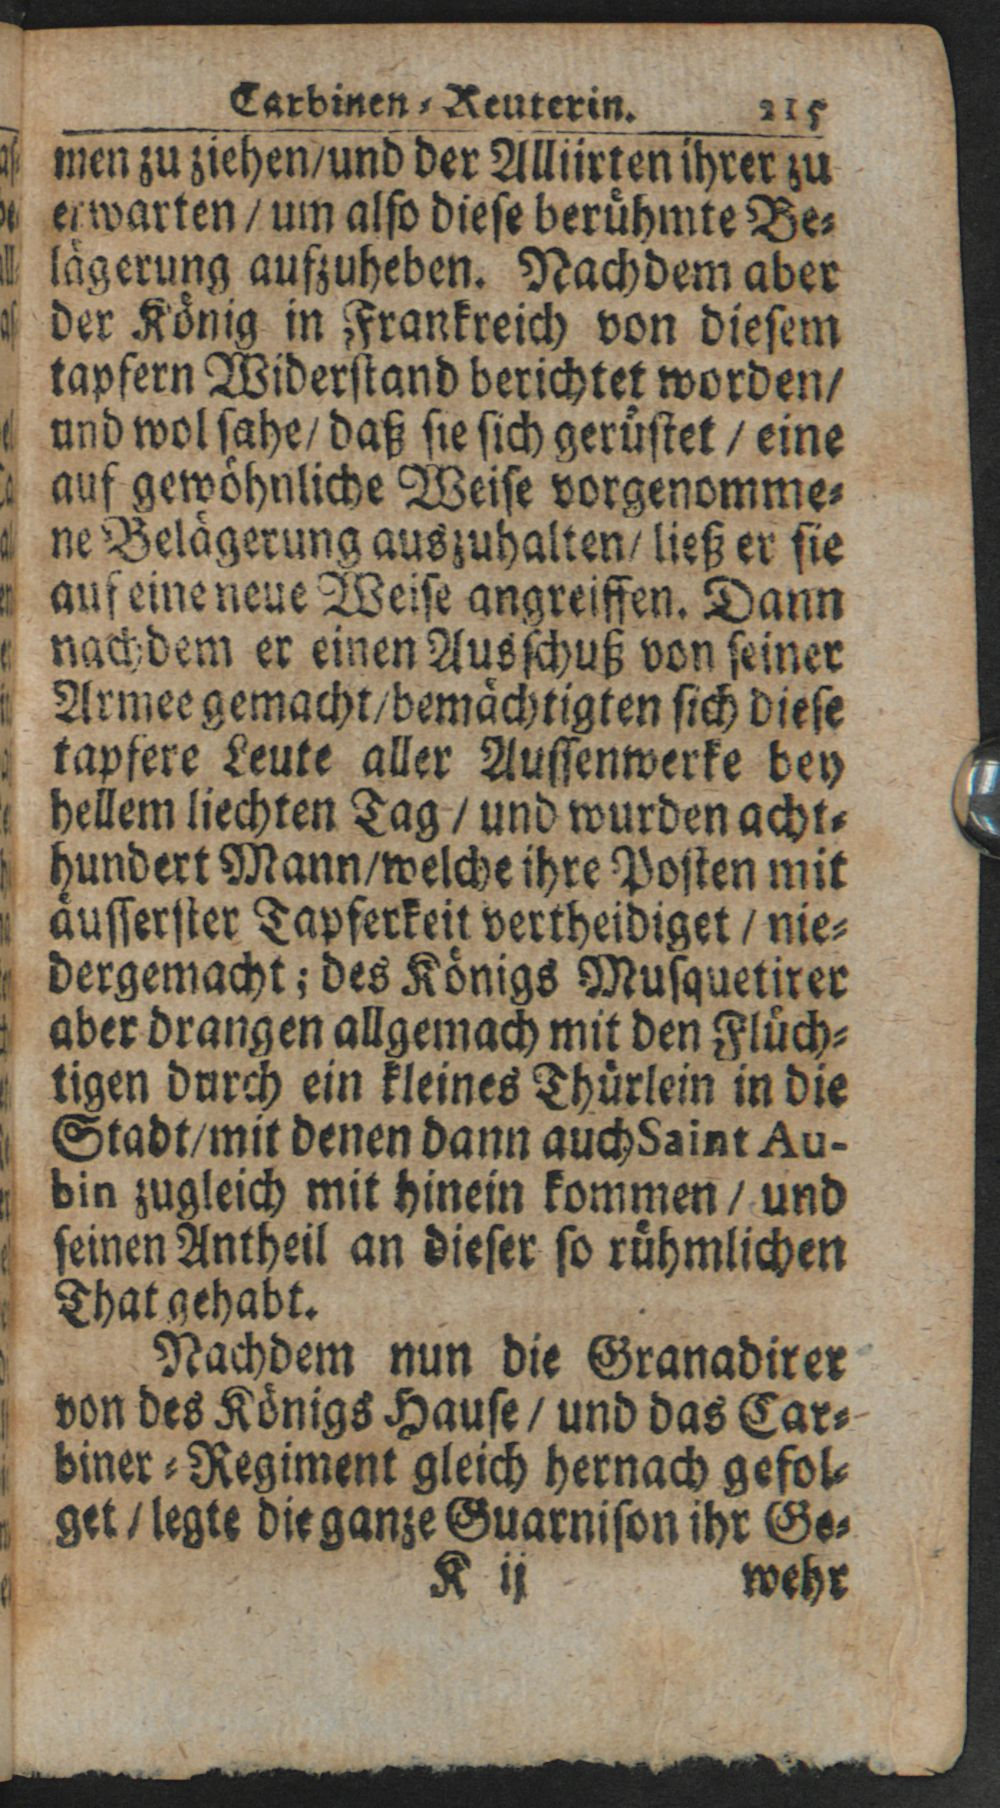 Carbinen-Reuterin. 215
men zu ziehen/und der Alliirten ihrer zu
erwarten / um also diese berühmte Be-
lägerung aufzuheben. Nachdem aber
der König in Frankreich von diesem
tapfern Widerstand berichtet worden/
und wol sahe/ daß sie sich gerüstet / eine
auf gewöhnliche Weise vorgenomme-
ne Belägerung auszuhalten/ ließ er sie
auf eine neue Weise angreiffen. Dann
nachdem er einen Ausschuß von seiner
Armee gemacht/bemächtigten sich diese
tapfere Leute aller Aussenwerke bey
hellem liechten Tag / und wurden acht-
hundert Mann/welche ihre Posten mit
äusserster Tapferkeit vertheidiget / nie-
dergemacht; des Königs Musquetirer
aber drangen allgemach mit den Flüch-
tigen durch ein kleines Thürlein in die
Stadt/mit denen dann auch Saint Au-
bin zugleich mit hinein kommen / und
seinen Antheil an dieser so rühmlichen
That gehabt.
Nachdem nun die Granadirer
von des Königs Hause / und das Car-
biner-Regiment gleich hernach gefol-
get / legte die ganze Guarnison ihr Ge-
K ij wehr